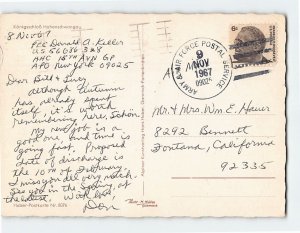 Königsschloß Hohenschwangau
8 Nov 67
PFC Donald A. Keller
US 56686328
HHC 18TH AVN GP
APO New York 09025
Dear Bill & Lucy,
although Autumn
has already spent
itself, it is worth
remembering here, Schön.
My new job is a
good one and time is
going fast. Proposed
date of discharge is
the 10TH of February.
I miss you all very much.
See you in the Spring, at
the latest. With love,
Don
ARMY & AIR FORCE POSTAL SERVICE
9
NOV
1967
09025
6c
Mr. & Mrs. Wm E. Hauer
8292 Bennett
Fontana, California
92335